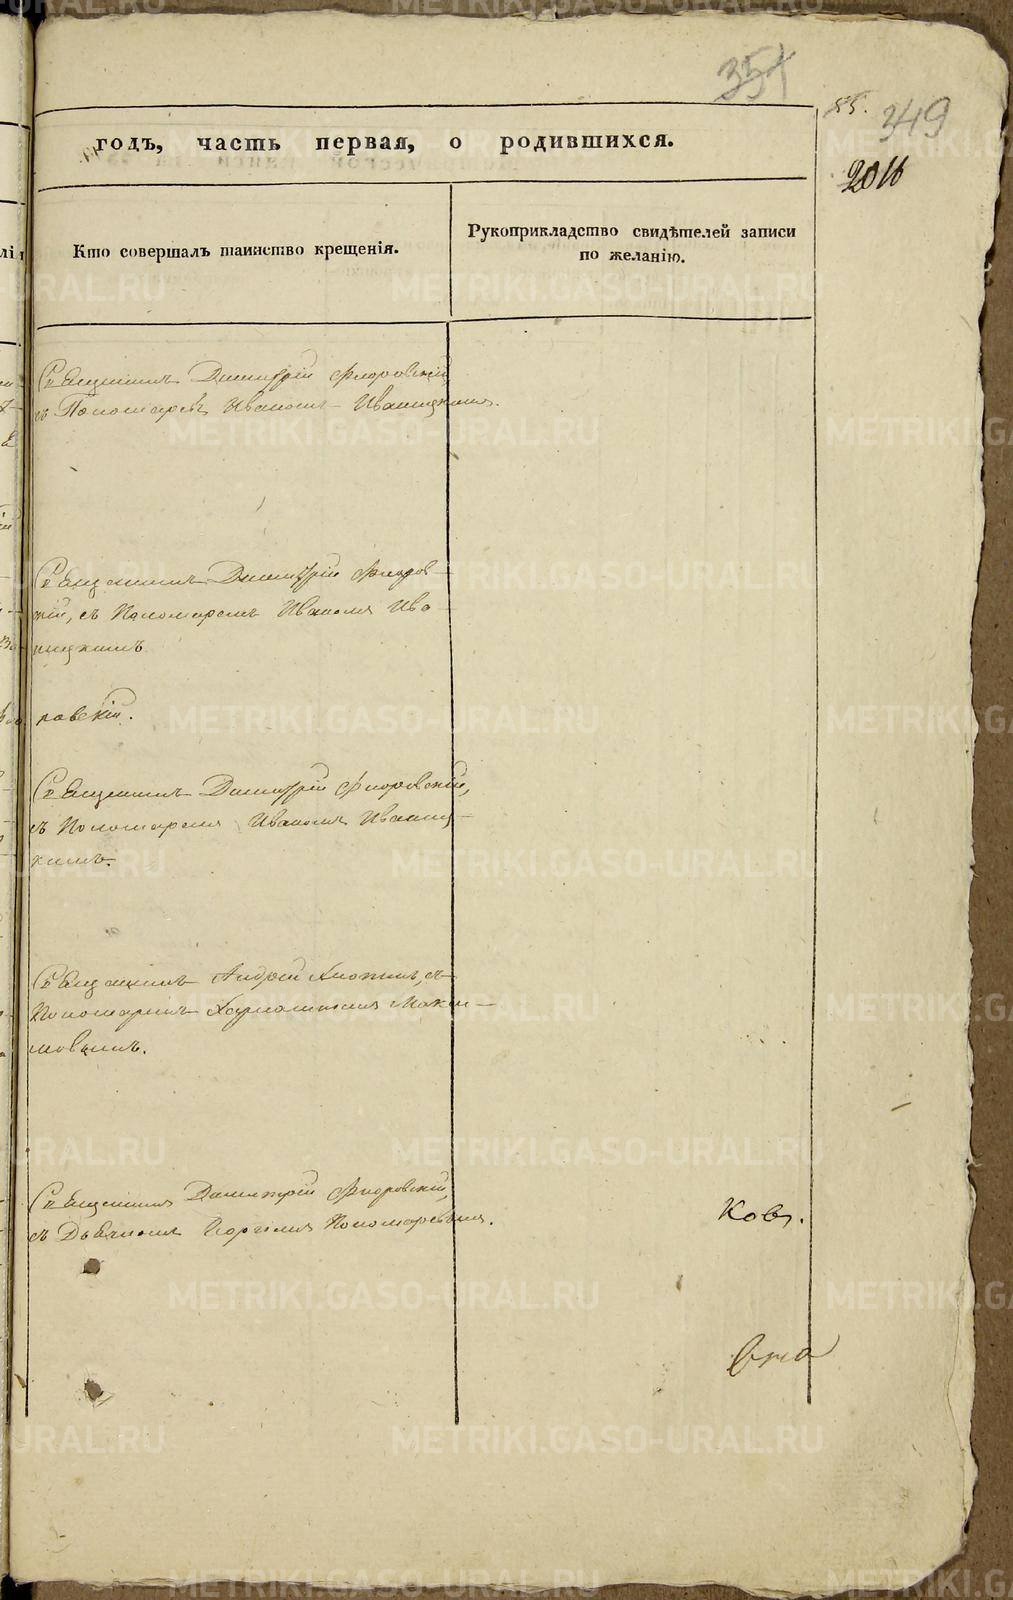 351
85.
349
2016
годъ, часть первая, о родившихся.
Кто совершалъ таинство крещенія.
Рукоприкладство свидѣтелей записи
по желанію.
Священникъ Димитрій Флоровскій
съ Пономаремъ Иваномъ Иваницкимъ.
Священникъ Димитрій Флоров-
скій, съ Пономаремъ Иваномъ Ива-
ницкимъ
ровскій.
Священникъ Димитрій Флоровскій,
съ Пономаремъ Иваномъ Иваниц-
кимъ.
Священникъ Андрей съ
Пономаремъ Макси-
мовымъ.
Священникъ Димитрій Флоровскій,
съ Дьячкомъ Пономаревымъ.
METRIKI.GASO-URAL.RU